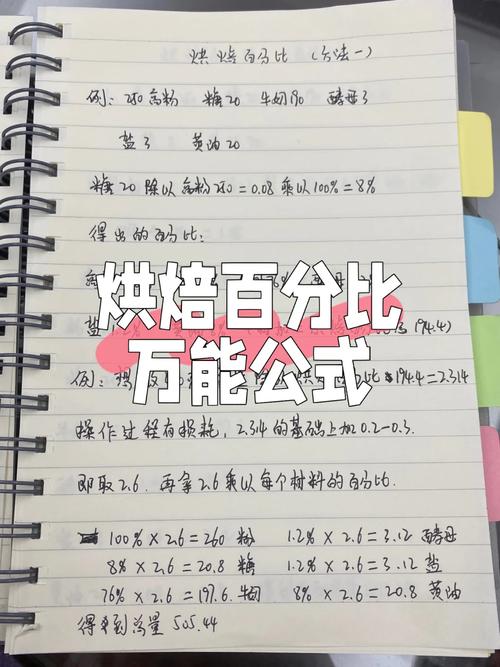 烘焙百分比(方法一)
例:250高粉 糖20 牛奶190 酵母3
盐3 黄油20
糖20除以高粉250=0.08乘以100%=8%
得出的百分比:
烘焙百分比
万能公式
盐 194.4)
例: 比194.4=2.314
操作过程有损耗,2.314的基础上加0.2-0.3.
即取2.6.再拿2.6乘以每个材料的百分比.
100%×2.6=260粉 1.2%×2.6=3.12酵母
8%×2.6=20.8糖 1.2%×2.6=3.12盐
76%×2.6=197.6.牛奶 8%×2.6=20.8黄油
得到总量505.44